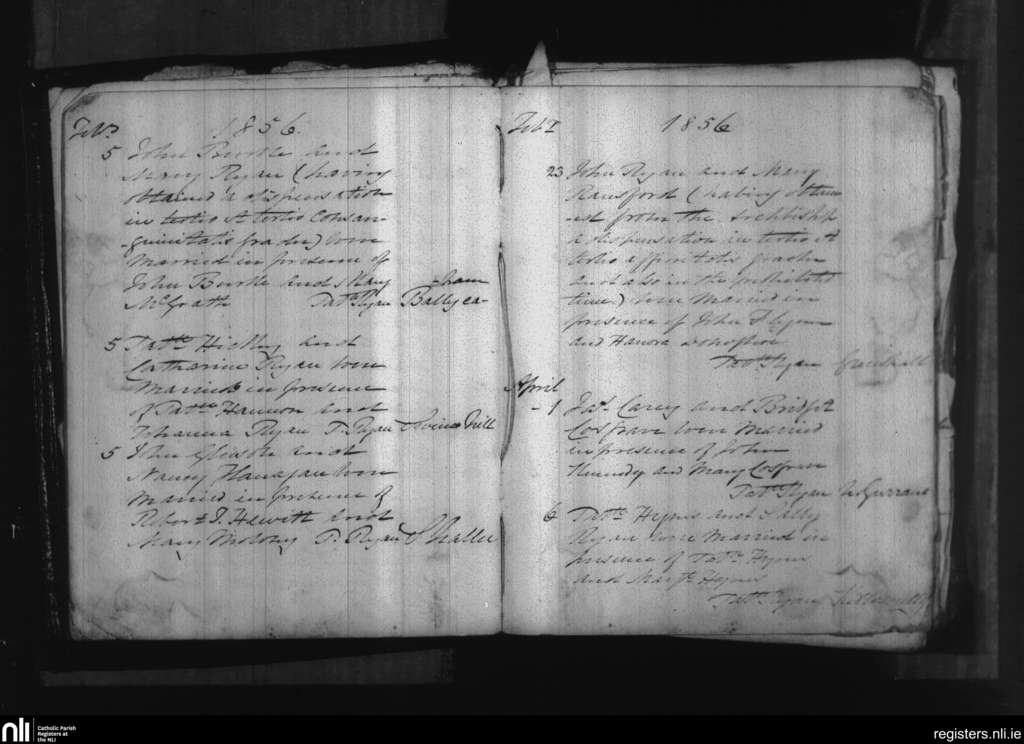 Feby 1856.
5 John Burke and
Mary Ryan (having
obtained a dispensation
in tertio et tertio Consan-
-guinitatis gradu) were
married in presence of
John Burke and Mary
McGrath Patk Ryan Ballyca-
-ham
5 Patk Hickey and
Catharine Ryan were
Married in presence
of Patk Hannon and
Johanna Ryan P. Ryan Hill
5 John Gleeson and
Nancy Flanagan were
married in presence of
Robert J. Hewitt and
Mary Molony P. Ryan Shallee
Feby 1856
23 John Ryan and Mary
Ransford (having obtain
-ed from the Archbishp
a dispensation in tertio et
tertio affinitatis gradu
and also in the prohibited
time) were married in
presence of John Flynn
and Hanora
Patk Ryan
April
-1 Jas. Carey and Bridget
Cosgrave were Married
in presence of John
Kennedy and Mary Cosgrave
Patk Ryan Gurrane
6 Patk Hynes and Sally
Ryan were married in
presence of Patk Hynes
and Margt Hynes
Patk Ryan
nli Catholic Parish
Registers at
the NLI
registers.nli.ie